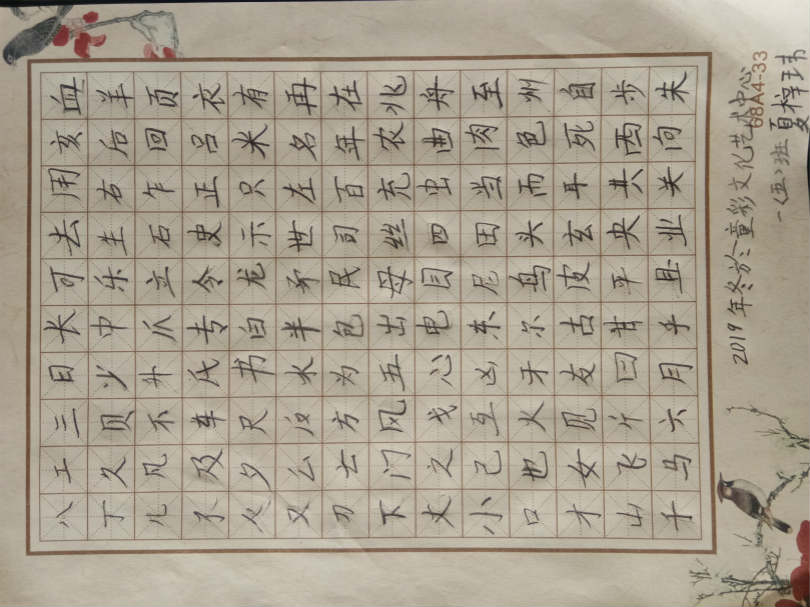 八工三日长可去用亥血
丁久贝少中乐生右后羊
儿凡不爪立石乍回页
了及车氏专令史正吕衣
夕尺书白龙示只米有
又么反水半矛世左名再
刀亡方为包民司百年在
下门风五出母丝充农兆
丈之戈心电目四虫曲舟
小己互凶东尼田当肉至
口也火牙尔鸟头而色州
才女见友古皮玄耳死自
山飞斤曰甘平央共西步
千马六月乎且业关向朱
2019年冬於童彩文化艺术中心
68A4-33
一(五)班 夏梓玮